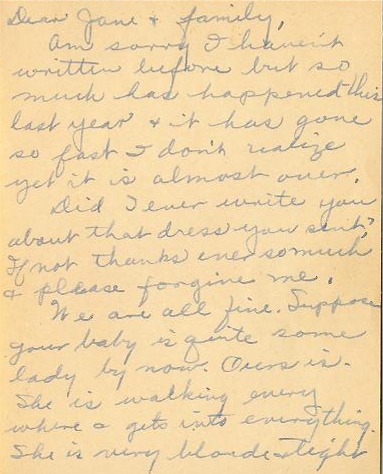 Dear Jane & family,
Am sorry I haven't
written before but so
much has happened this
last year & it has gone
so fast I don't realize
yet it is almost over.
Did I ever write you
about that dress you sent?
If not thanks ever so much
& please forgive me.
We are all fine. Suppose
your baby is quite some
lady by now. Ours is.
She is walking every
where & gets into everything.
She is very blonde & light